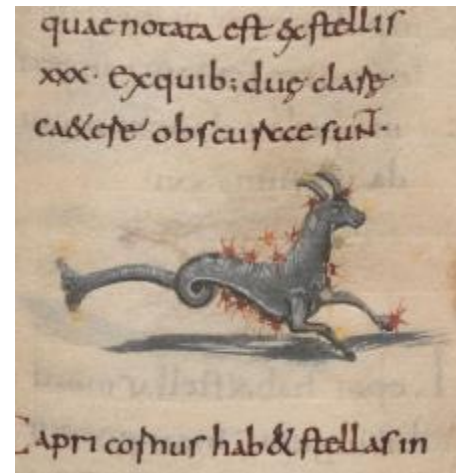 quae notata est & stellis
xxx. Ex quib; duę clarę
cȩ&erę obscurȩ sunt.
Capricornus hab& stellas in